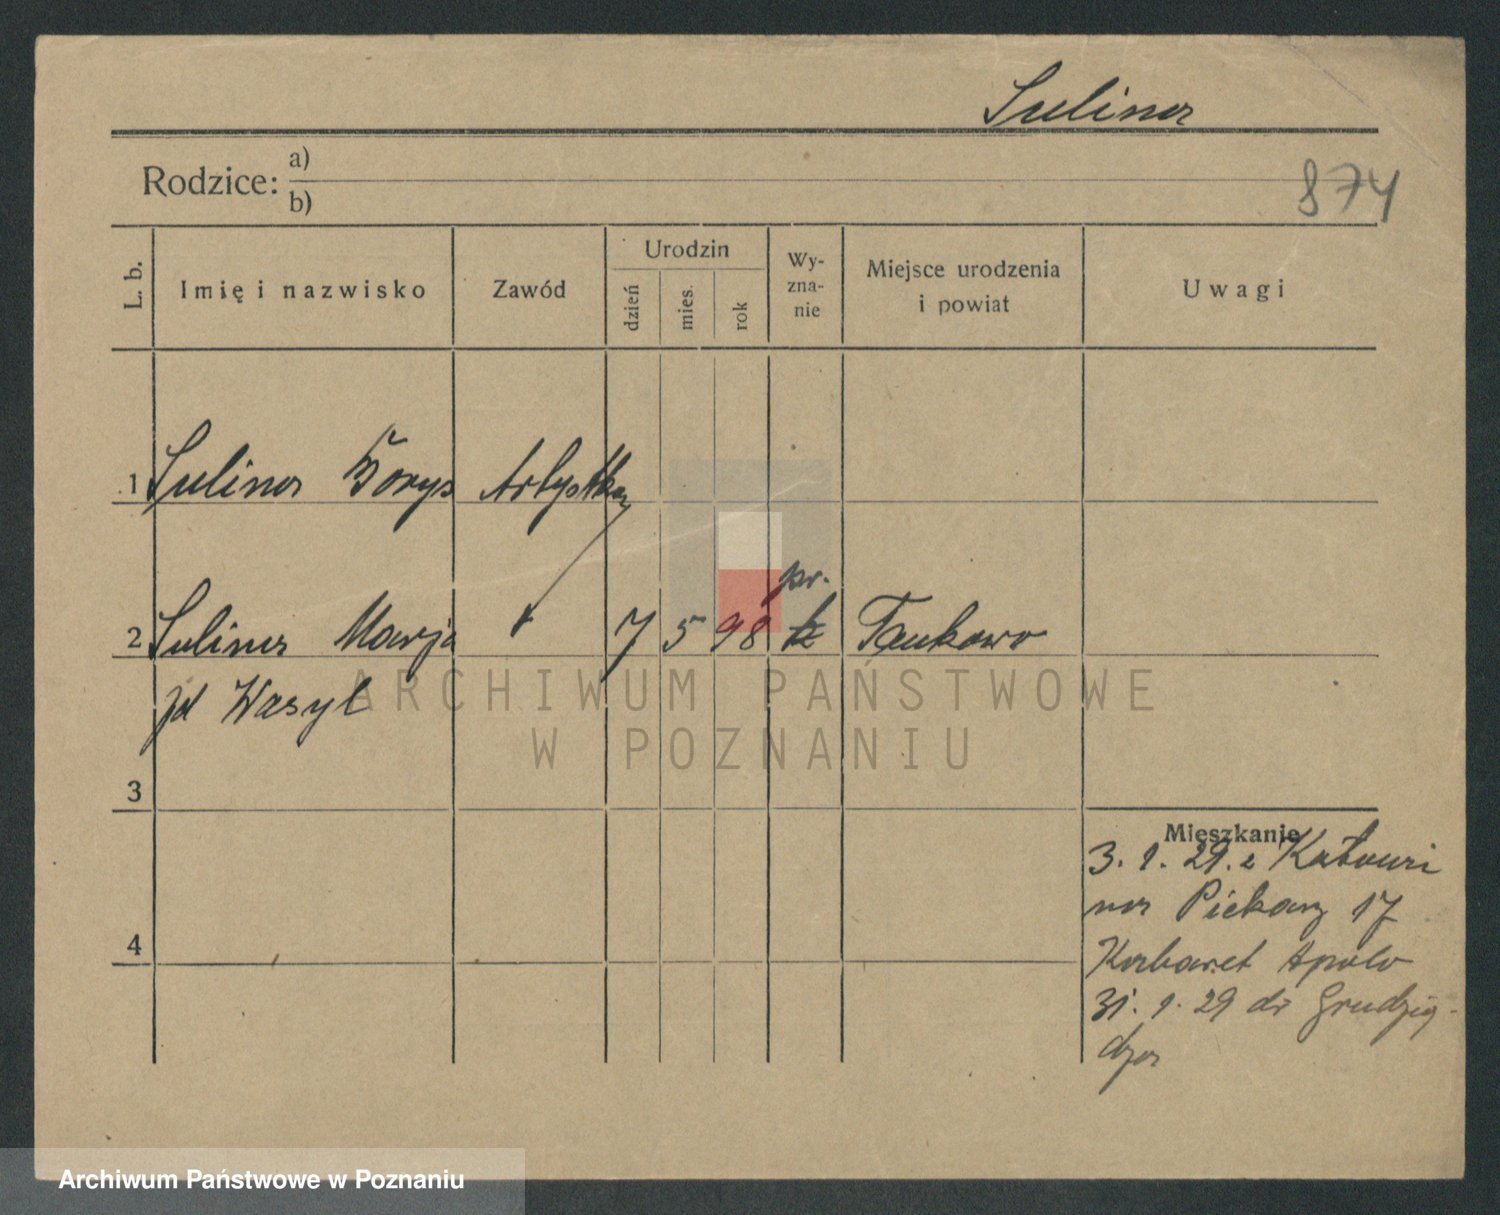 Sulina
Rodzice: a)
b)
874
L. b.
Imię i nazwisko
Zawód
Urodzin
dzień
mies.
rok
Wy-
zna-
nie
Miejsce urodzenia
i powiat
Uwagi
1 Sulina Borys Artystka
pr.
2 Sulina Marja 7 5 98 k Tankowo
zd Wasyl
3
4
Mieszkanie
3. 1. 29. z Katowic
na Piekary 17
Kabaret Apolo
31. 1. 29 do Grudzią-
dza
ARCHIWUM PAŃSTWOWE
W POZNANIU
Archiwum Państwowe w Poznaniu